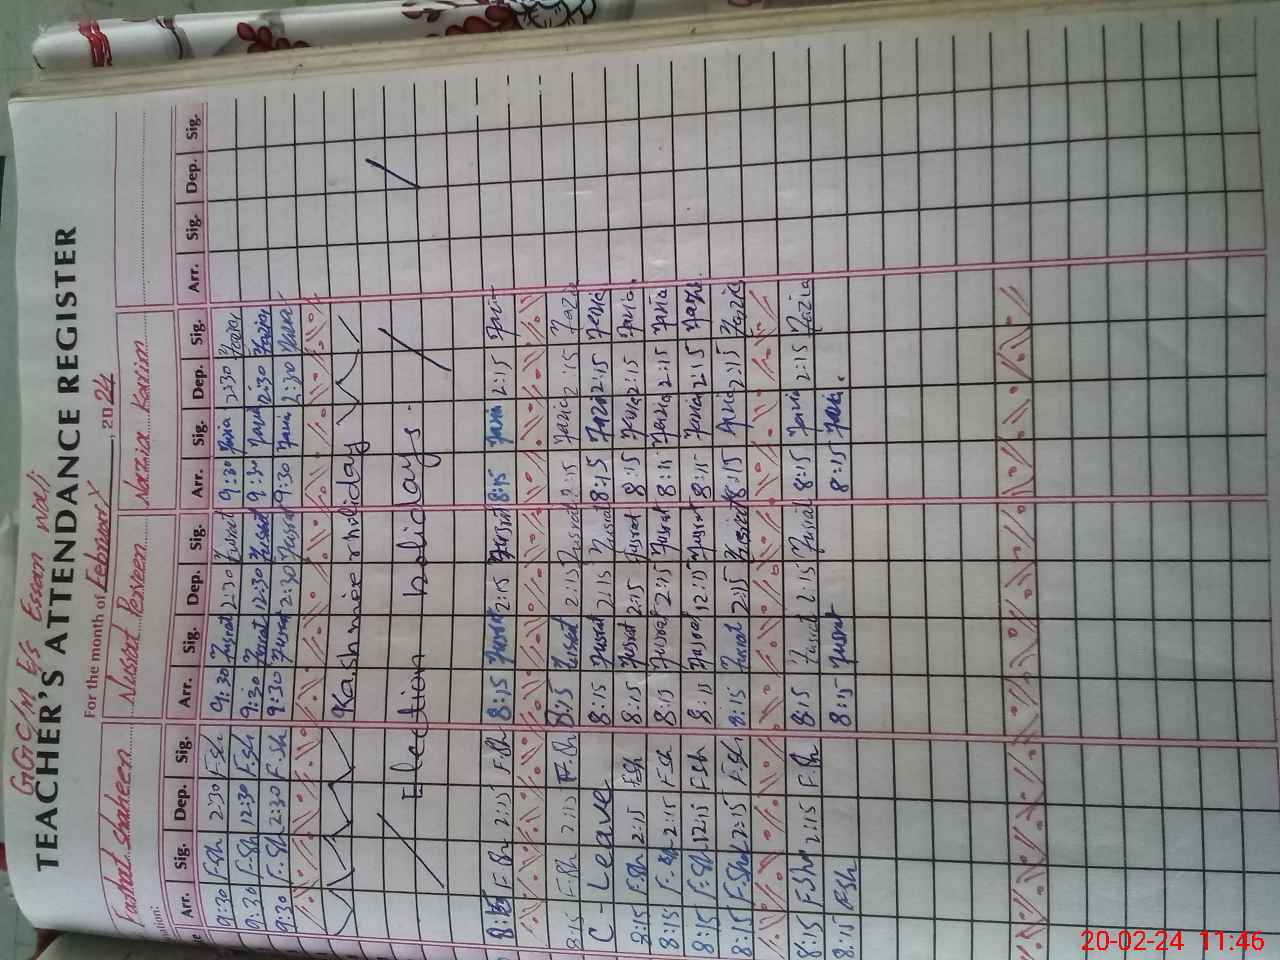 GGC/M E/S Essan Wali
TEACHER'S ATTENDANCE REGISTER
For the month of February, 2024
Farhat shaheen Nusrat Perveen Nazia Karim
Arr. Sig. Dep. Sig. Arr. Sig. Dep. Sig. Arr. Sig. Dep. Sig. Arr. Sig. Dep. Sig.
9:30 F.Sh 2:30 F.Sh 9:30 Nusrat 2:30 Nusrat 9:30 Nazia 2:30 Nazia
9:30 F.Sh 12:30 F.Sh 9:30 Nusrat 12:30 Nusrat 9:30 Nazia 12:30 Nazia
9:30 F.Sh 2:30 F.Sh 9:30 Nusrat 2:30 Nusrat 9:30 Nazia 2:30 Nazia
Kashmir holiday
Election holidays.
8:15 F.Sh 2:15 F.Sh 8:15 Nusrat 2:15 Nusrat 8:15 Nazia 2:15 Nazia
8:15 F.Sh 2:15 F.Sh 8:15 Nusrat 2:15 Nusrat 8:15 Nazia 2:15 Nazia
C - Leave 8:15 Nusrat 2:15 Nusrat 8:15 Nazia 2:15 Nazia
8:15 F.Sh 2:15 F.Sh 8:15 Nusrat 2:15 Nusrat 8:15 Nazia 2:15 Nazia
8:15 F.Sh 2:15 F.Sh 8:15 Nusrat 2:15 Nusrat 8:15 Nazia 2:15 Nazia
8:15 F.Sh 12:15 F.Sh 8:15 Nusrat 12:15 Nusrat 8:15 Nazia 2:15 Nazia
8:15 F.Sh 2:15 F.Sh 8:15 Nusrat 2:15 Nusrat 8:15 Nazia 2:15 Nazia
8:15 F.Sh 2:15 F.Sh 8:15 Nusrat 2:15 Nusrat 8:15 Nazia 2:15 Nazia
8:15 F.Sh 8:15 Nusrat 8:15 Nazia
20-02-24 11:46